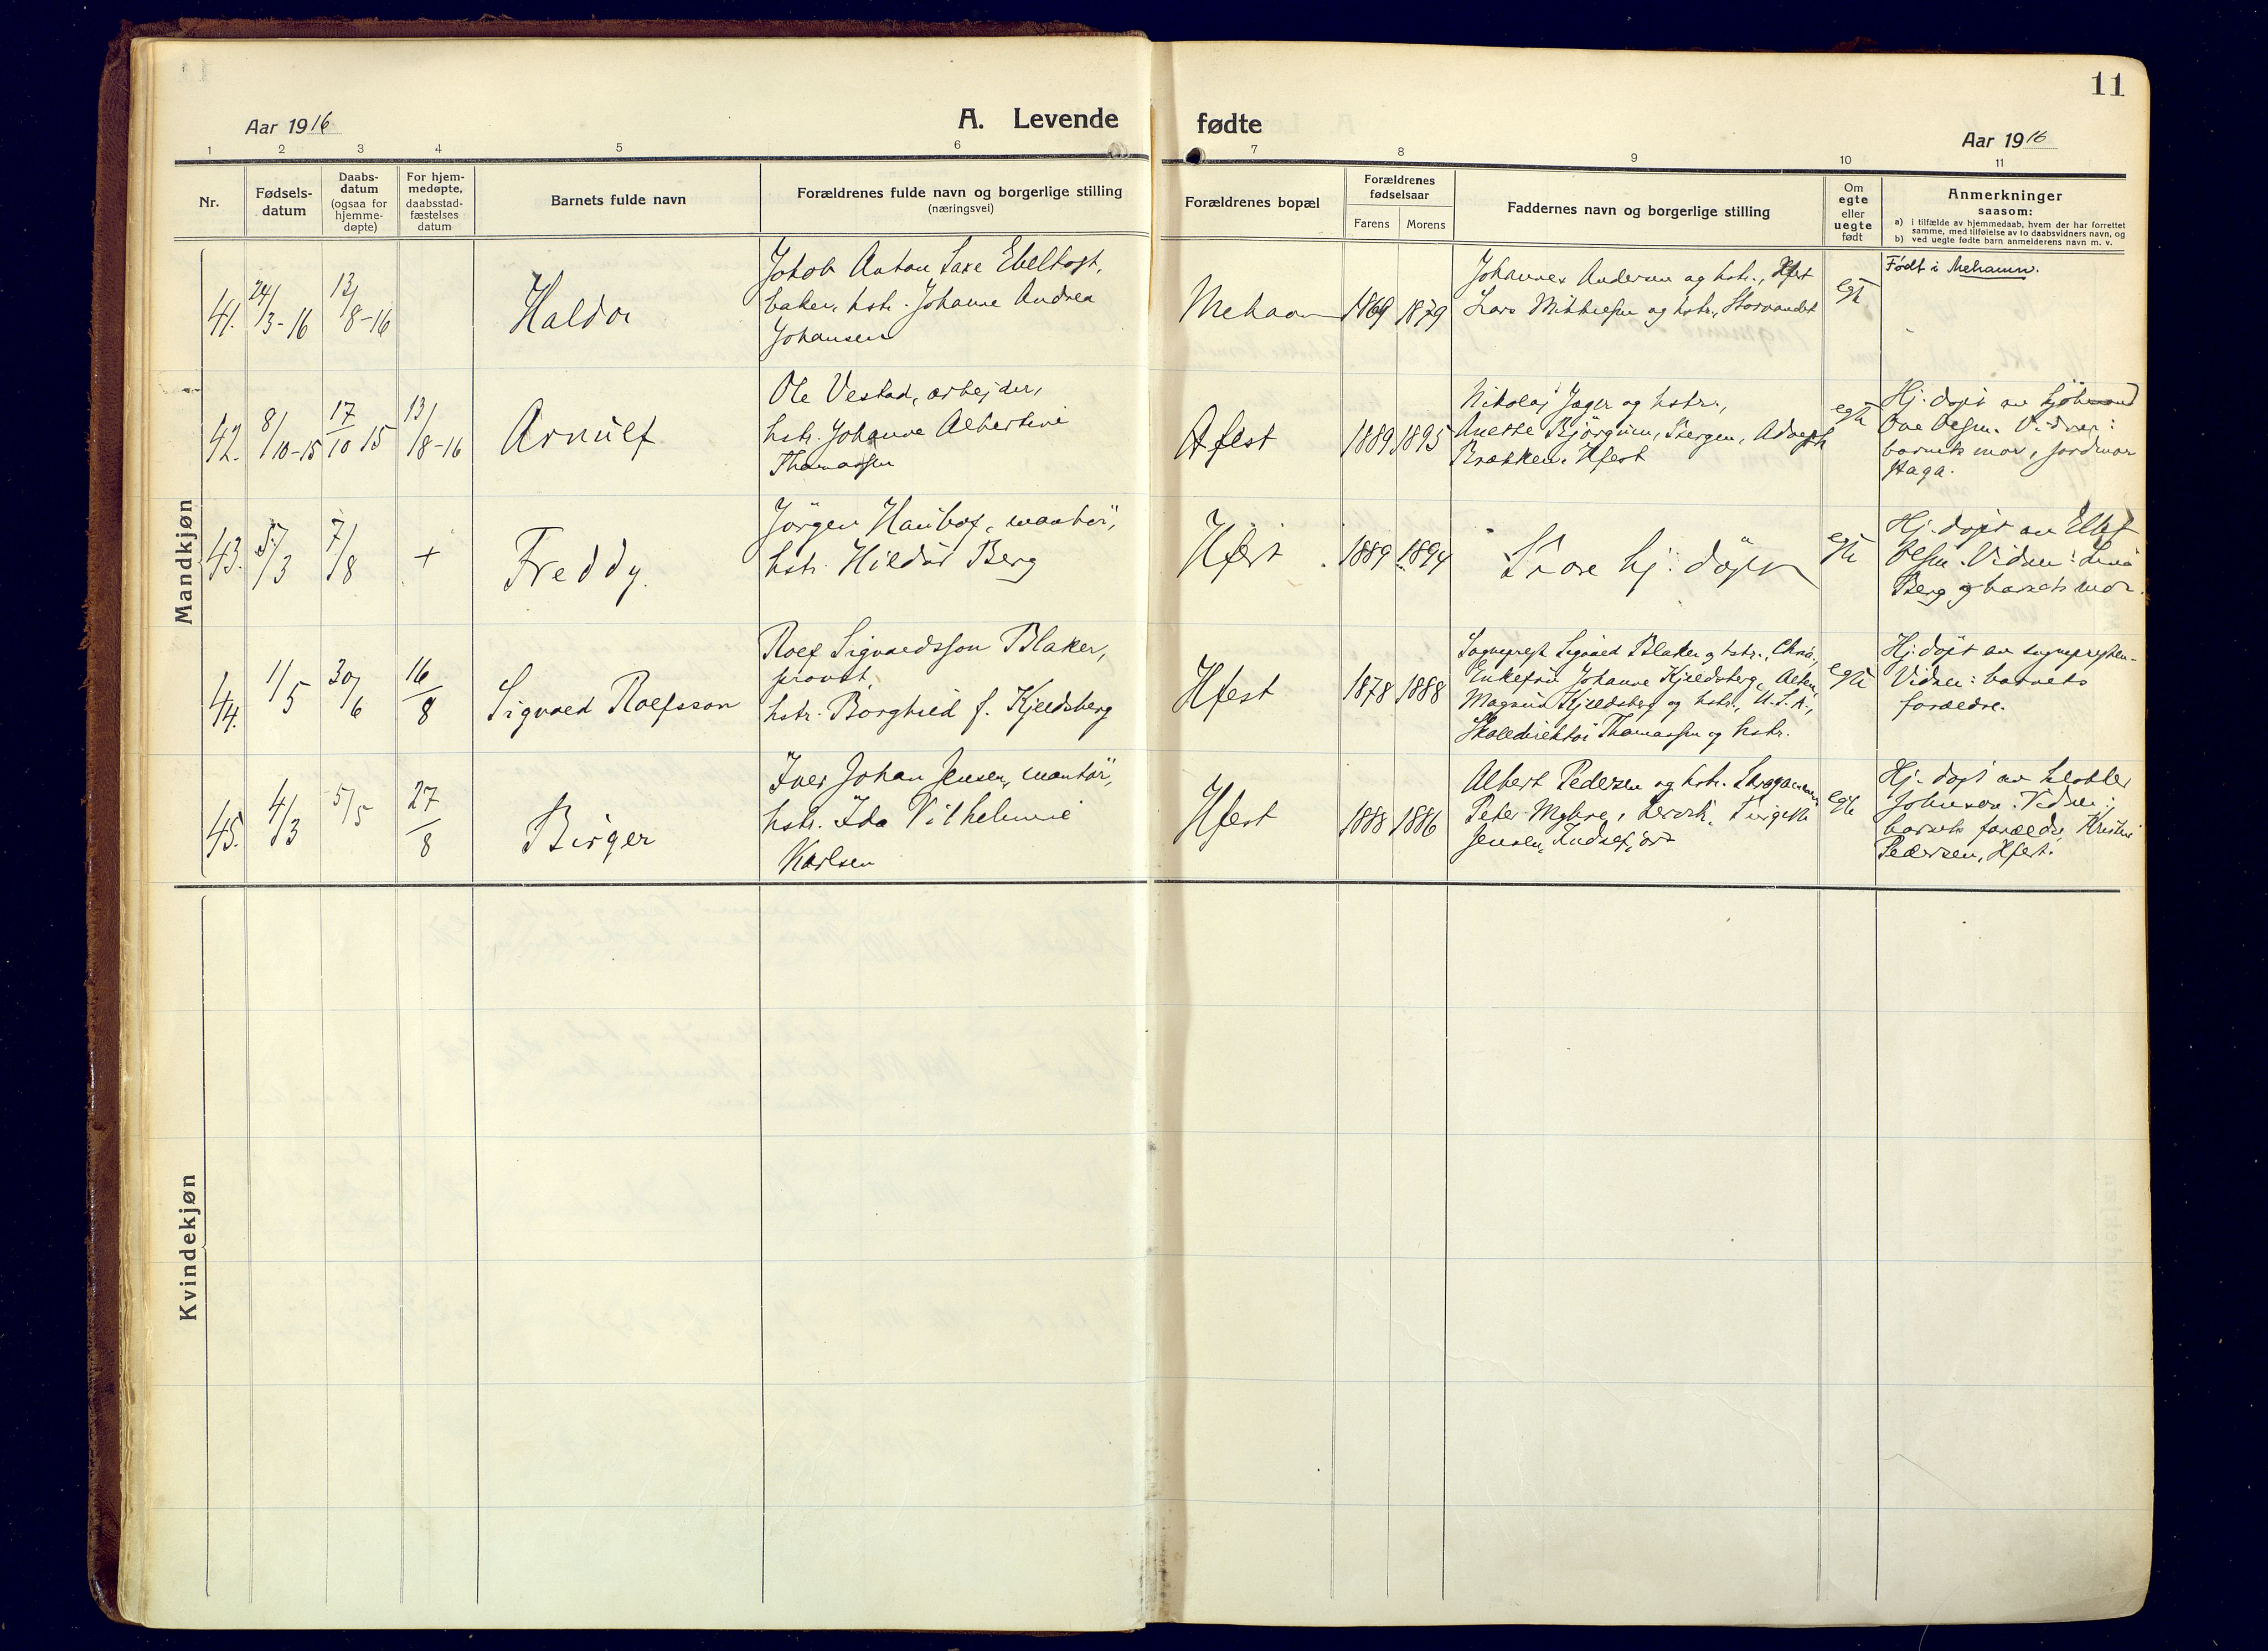 11
Aar 1916
A. Levende fødte
Aar 1916
1 2 3 4 5 6 7 8 9 10 11
Nr.
Fødsels-
datum
Daabs-
datum
(ogsaa for
hjemme-
døpte)
For hjem-
medøpte,
daabsstad-
fæstelses
datum
Barnets fulde navn
Forældrenes fulde navn og borgerlige stilling
(næringsvei)
Forældrenes bopæl
Forældrenes
fødselsaar
Farens Morens
Faddernes navn og borgerlige stilling
Om
egte
eller
uegte
født
Anmerkninger
saasom:
a) i tilfælde av hjemmedaab, hvem der har forrettet
samme, med tilføielse av to daabsvidners navn, og
b) ved uegte fødte barn anmelderens navn m. v.
Mandkjøn
41. 24/3-16 13/8-16
Haldor
Jakob Anton Saxe Ebeltoft,
baker, hstr. Johanne Andrea
Johansen
Mehavn
1869 1879
Johannes Andersen og hstr., Hfest
Lars Mikkelsen og hstr., Storvandet
egte
Født i Mehamn.
42. 8/10-15 17/10 15 13/8-16
Arnulf
Ole Vestad, arbejder,
hstr. Johanne Albertine
Thomassen
Hfest
1889 1895
Nikolaj Jæger og hstr.,
Anette Bjørgum, Bergen, Adolf
Brækken, Hfest
egte
Hj. døpt av
Ove Olsen. Vidner:
barnets mor, jordmor
Haga.
43. 5/3 7/8 +
Freddy.
Jörgen Hauboff, montör,
hstr. Hildur Berg
Hfest
1889 1894
hj. döpt
egte
Hj. døpt av
Olsen. Vidner: Lina
Berg og barnets mor.
44. 1/5 30/6 16/8
Sigvald Rolfsson
Rolf Sigvaldssön Blaker,
provst,
hstr. Borghild f. Kjeldsberg
Hfest
1878 1888
Sogneprest Sigvald Blaker og hstr., Chra.,
Enkefru Johanne Kjeldsberg, Alten,
Magnus Kjeldsberg og hstr., U.S.A.,
Skoledirektör Thomassen og hstr.
egte
Hj. döpt av sognepresten.
Vidner: barnets
forældre.
45. 4/3 5/5 27/8
Birger
Iver Johan Jensen, montör,
hstr. Ida Vilhelmine
Karlsen
Hfest
1888 1886
Albert Pedersen og hstr.
Peter Myhre, Lervik, Birgitte
Jensen,
egte
Hj. døpt av
Johnsen. Vidner:
barnets forældre, Kristine
Pedersen, Hfest.
Kvindekjøn